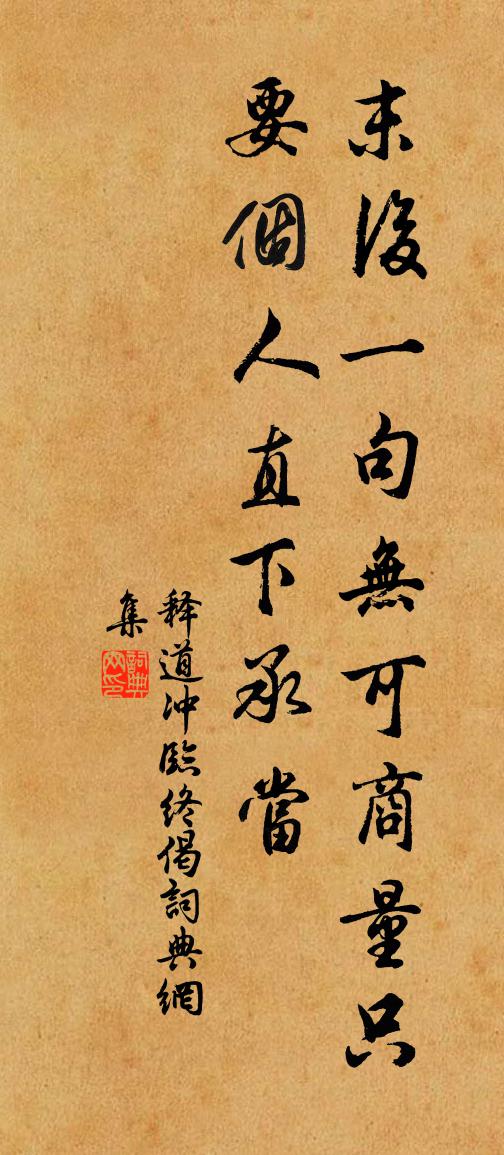 末後一句無可商量只
要個人直下承當
释道冲臨终偈詞典網
集
詞典網印